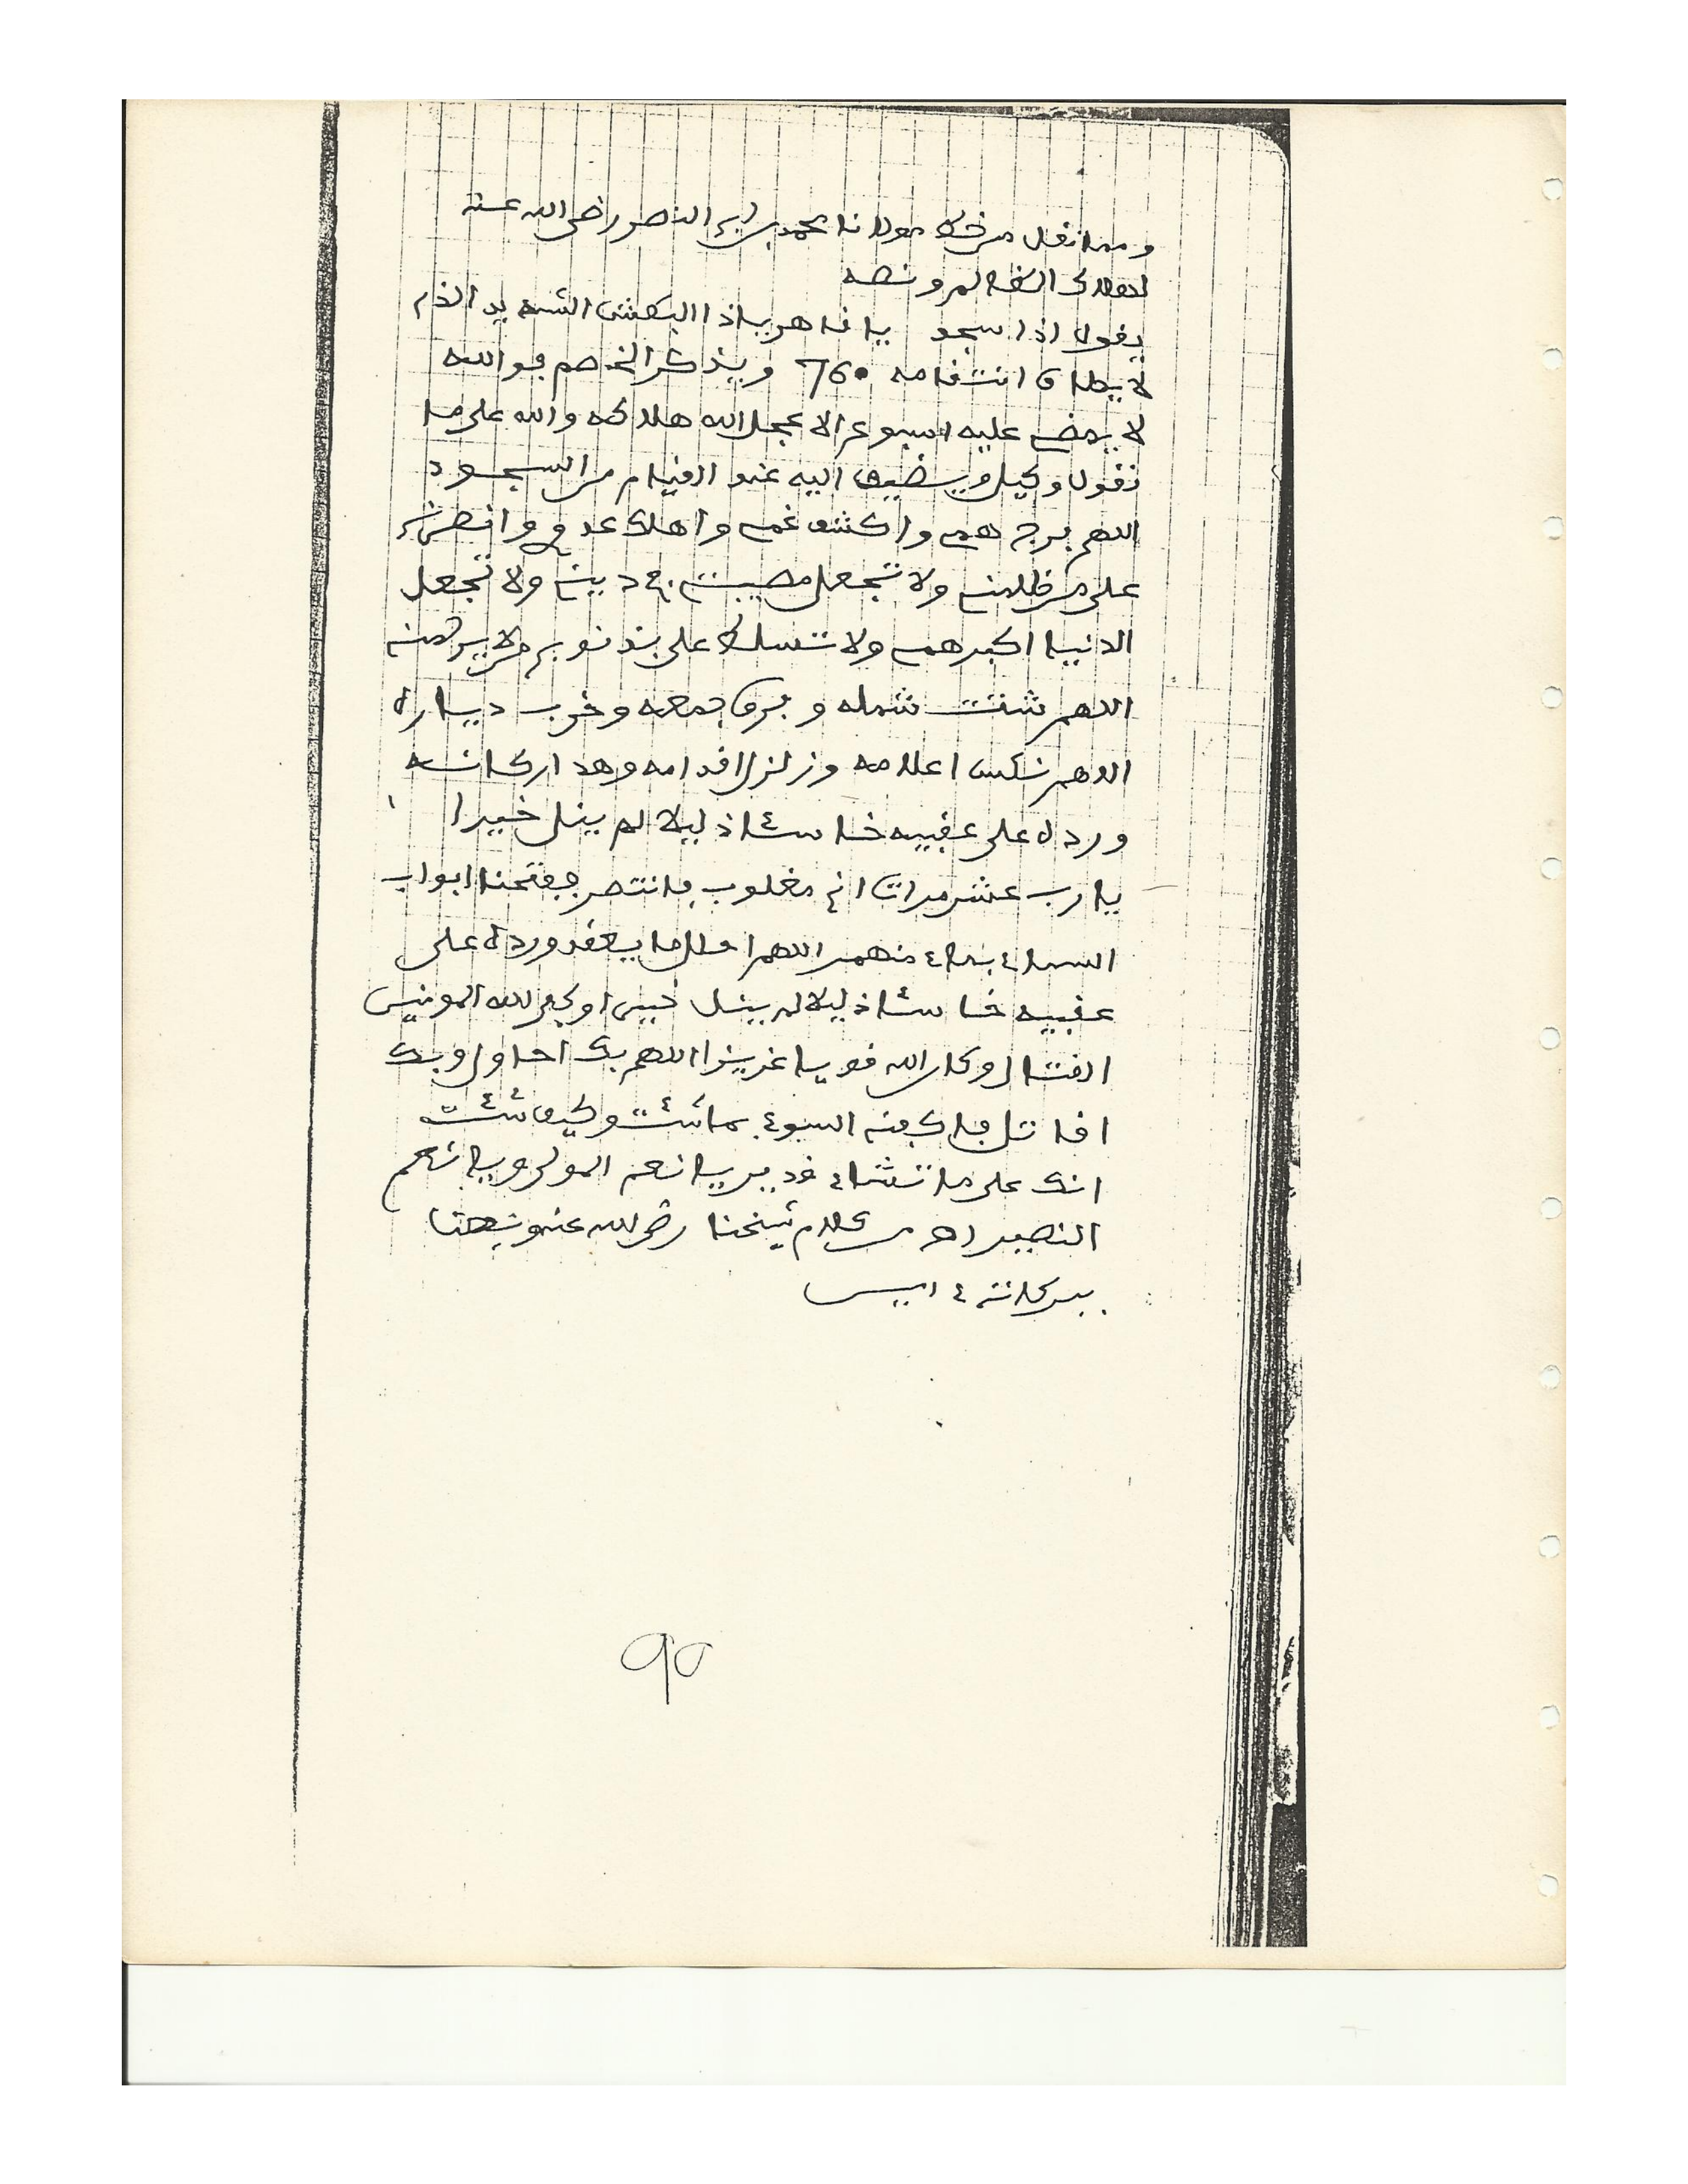 ومما نقل من خط مولانا محمد بن ابي النصر رضى الله عنه
لهلاك الظالم ونصه
يقول اذا سجد يا قاهر ياذا البطش الشديد الذي
لا يطاق انتقامه 760 ويذكر الخصم فوالله
لا يمضي عليه اسبوع الا عجل الله هلاكه والله على ما
نقول وكيل ويضيف اليه عند القيام من السجود
اللهم فرج همي واكشف غمي واهلك عدوي وانصرني
على من ظلمني ولا تجعل مصيبتي في ديني ولا تجعل
الدنيا اكبر همي ولا تسلط علي بذنوبي من لا يرحمني
اللهم شتت شمله وفرق جمعه وخرب دياره
اللهم نكس اعلامه وزلزل اقدامه وهد اركانه
ورده على عقبيه خاسئا ذليلا لم ينل خيرا
يا رب عشر مرات اني مغلوب فانتصر ففتحنا ابواب
السماء بماء منهمر اللهم ورده على
عقبيه خاسئا ذليلا لم ينل خيرا وكفى الله المومنين
القتال وكان الله قويا عزيزا اللهم بك احاول وبك
اقاتل فاكفنه السوء بما شئت وكيف شئت
انك على ما تشاء قدير يا نعم المولى ويا نعم
النصير اهـ من كلام شيخنا رضى الله عنه ونفعنا
ببركاته ءامين
90